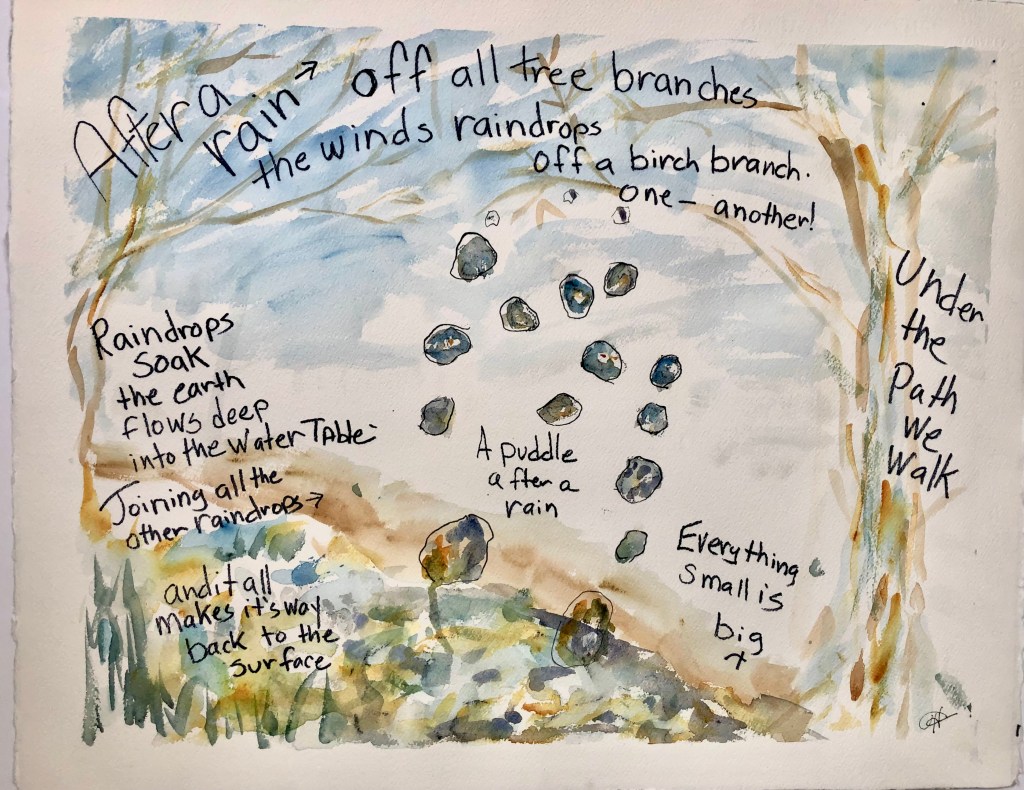 After a
rain → off all tree branches
the winds raindrops
off a birch branch.
one — another!
Raindrops
soak
the earth
flows deep
into the water TAble
Joining all the
other raindrops →
and it all
makes it's way
back to the
surface
A puddle
after a
rain
Everything
small is
big
Under
the
Path
we
walk